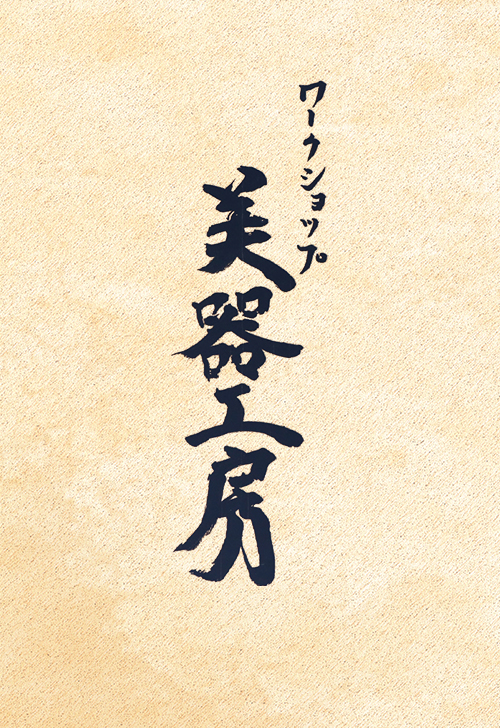 ワークショップ
美器工房